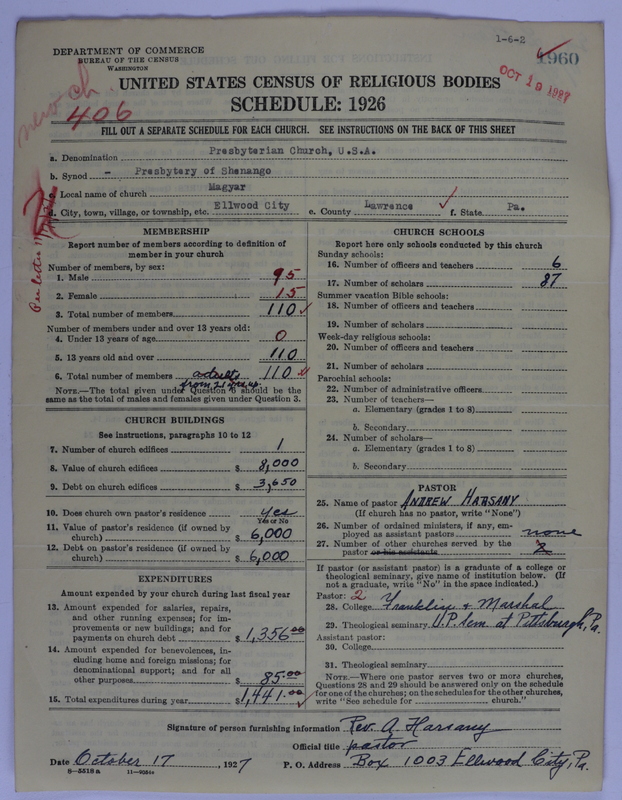 1-6-2
1960
DEPARTMENT OF COMMERCE
BUREAU OF THE CENSUS
WASHINGTON
OCT 19 1927
UNITED STATES CENSUS OF RELIGIOUS BODIES
SCHEDULE: 1926
new ch.
406
FILL OUT A SEPARATE SCHEDULE FOR EACH CHURCH. SEE INSTRUCTIONS ON THE BACK OF THIS SHEET
a. Denomination Presbyterian Church, U.S.A.
b. Synod - Presbytery of Shenango
c. Local name of church Magyar
d. City, town, village, or township, etc. Ellwood City e. County Lawrence f. State Pa.
Per letter
MEMBERSHIP
Report number of members according to definition of
member in your church
Number of members, by sex:
1. Male 95
2. Female 15
3. Total number of members 110
Number of members under and over 13 years old:
4. Under 13 years of age 0
5. 13 years old and over 110
6. Total number of members adults 110
from 21 yrs up.
NOTE.—The total given under Question 6 should be the
same as the total of males and females given under Question 3.
CHURCH BUILDINGS
See instructions, paragraphs 10 to 12
7. Number of church edifices 1
8. Value of church edifices $ 8,000
9. Debt on church edifices $ 3,650
10. Does church own pastor's residence yes
Yes or No
11. Value of pastor's residence (if owned by
church) $ 6,000
12. Debt on pastor's residence (if owned by
church) $ 6,000
EXPENDITURES
Amount expended by your church during last fiscal year
13. Amount expended for salaries, repairs,
and other running expenses; for im-
provements or new buildings; and for
payments on church debt $ 1,356.00
14. Amount expended for benevolences, in-
cluding home and foreign missions; for
denominational support; and for all
other purposes $ 85.00
15. Total expenditures during year $ 1,441.00
CHURCH SCHOOLS
Report here only schools conducted by this church
Sunday schools:
16. Number of officers and teachers 6
17. Number of scholars 87
Summer vacation Bible schools:
18. Number of officers and teachers
19. Number of scholars
Week-day religious schools:
20. Number of officers and teachers
21. Number of scholars
Parochial schools:
22. Number of administrative officers
23. Number of teachers—
a. Elementary (grades 1 to 8)
b. Secondary
24. Number of scholars—
a. Elementary (grades 1 to 8)
b. Secondary
PASTOR
25. Name of pastor ANDREW HARSANY
(If church has no pastor, write "None")
26. Number of ordained ministers, if any, em-
ployed as assistant pastors none
27. Number of other churches served by the
pastor or his assistants 2
If pastor (or assistant pastor) is a graduate of a college or
theological seminary, give name of institution below. (If
not a graduate, write "No" in the space indicated.)
Pastor: 2
28. College Franklin & Marshal
29. Theological seminary U.P. Sem. at Pittsburgh, Pa.
Assistant pastor:
30. College
31. Theological seminary
NOTE.—Where one pastor serves two or more churches,
Questions 28 and 29 should be answered only on the schedule
for one of the churches; on the schedules for the other churches,
write "See schedule for church."
Signature of person furnishing information Rev. A Harsany
Official title pastor
Date October 17, 1927 P. O. Address Box 1003 Ellwood City, Pa.
8-5518 a 11-9084